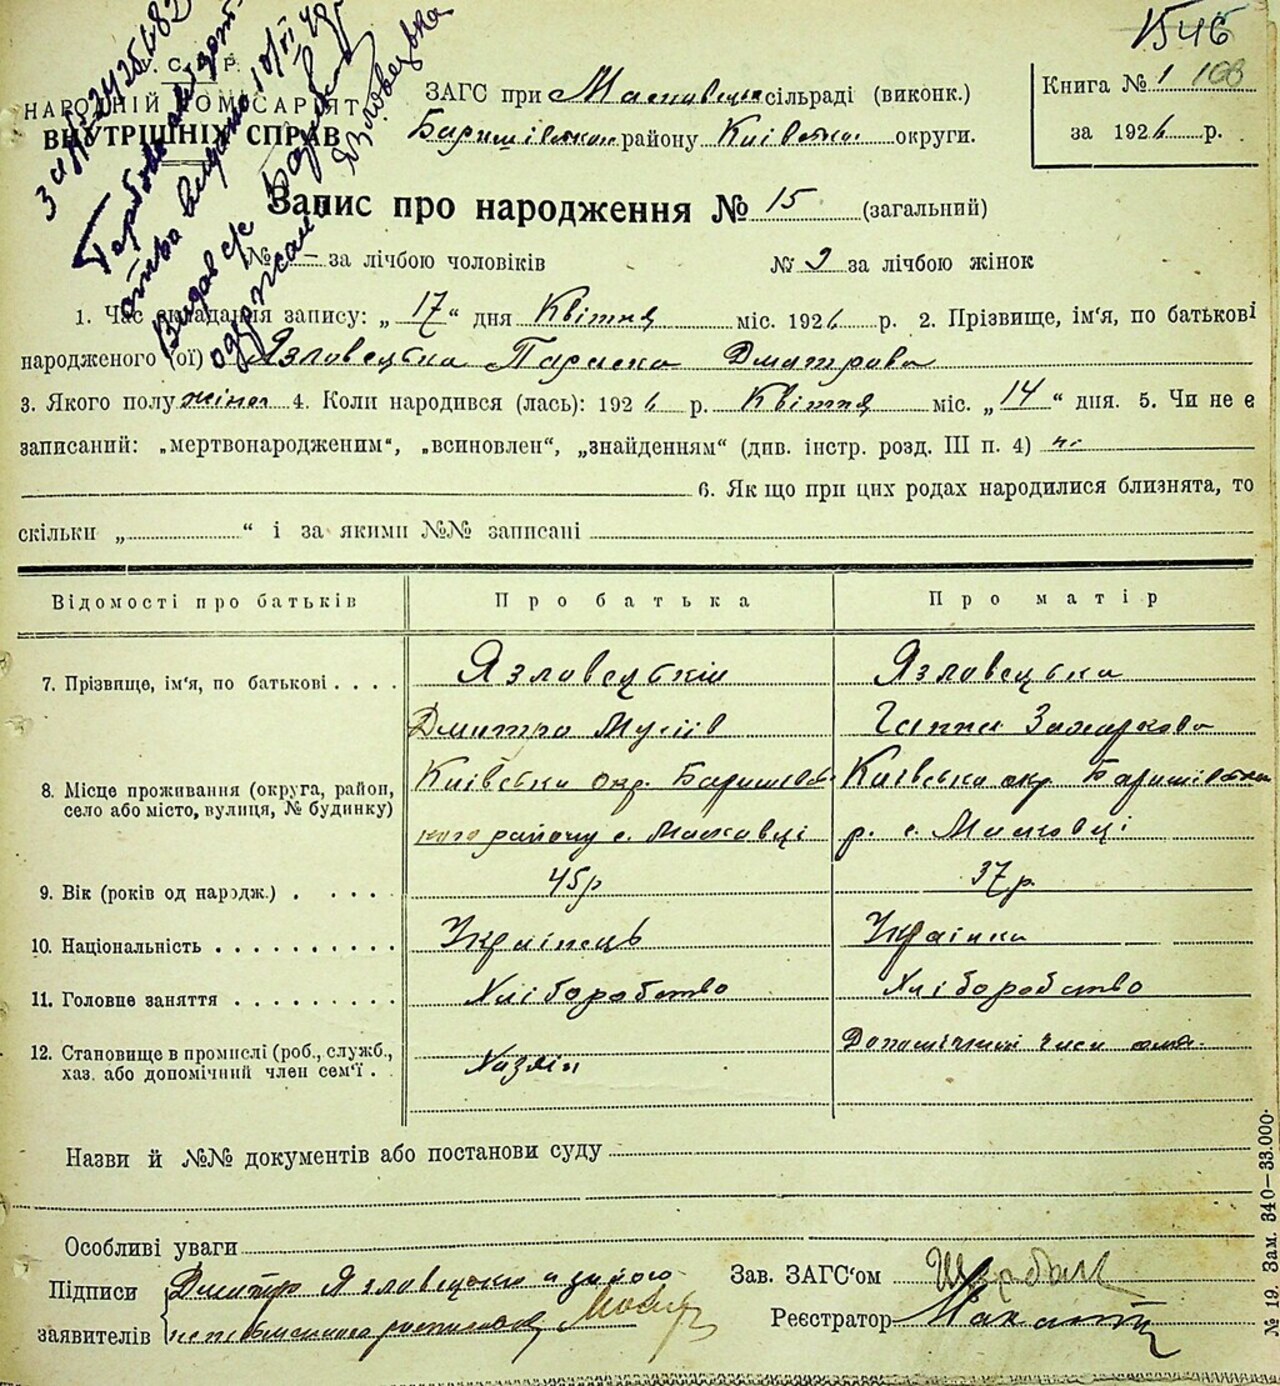 1546
У. С. Р. Р.
НАРОДНІЙ КОМІСАРІЯТ
ВНУТРІШНІХ СПРАВ
ЗАГС при Масковецькій сільраді (виконк.)
Баришівському району Київської округи.
Книга № 1 108
за 1926 р.
Запис про народження № 15 (загальний)
№ — за лічбою чоловіків № 9 за лічбою жінок
1. Час складання запису: „ 17 “ дня Квітня міс. 1926 р. 2. Прізвище, ім'я, по батькові
народженого (ої) Язловецька Параска Дматрова
3. Якого полу жіноч 4. Коли народився (лась): 1926 р. Квітня міс. „ 14 “ дня. 5. Чи не є
записаний: „мертвонародженим“, „всиновлен“, „знайденням“ (див. інстр. розд. III п. 4) ні
6. Як що при цих родах народилися близнята, то
скільки „ “ і за якими №№ записані
Відомості про батьків Про батька Про матір
7. Прізвище, ім'я, по батькові . . . . Язловецький Язловецька
Дмитро Мусіїв Ганна Захаркова
8. Місце проживання (округа, район, село або місто, вулиця, № будинку) Київська окр. Баришівсь- Київська окр. Баришівськ
кого району с. Масковці р. с. Масковці
9. Вік (років од народж.) . . . . 45р 37р.
10. Національність . . . . . . . . . . Українець Українка
11. Головне заняття . . . . . . . . . Хліборобство Хліборобство
12. Становище в промислі (роб., служб., хаз. або допомічний член сем'ї . Хазяїн Допомічний член сем'ї
Назви й №№ документів або постанови суду
Особливі уваги
Підписи Дмитро Язловецький а за його
заявителів неписьменного росписався
Зав. ЗАГС'ом Щербак
Реєстратор
№ 19. Зам. 340—33.000.